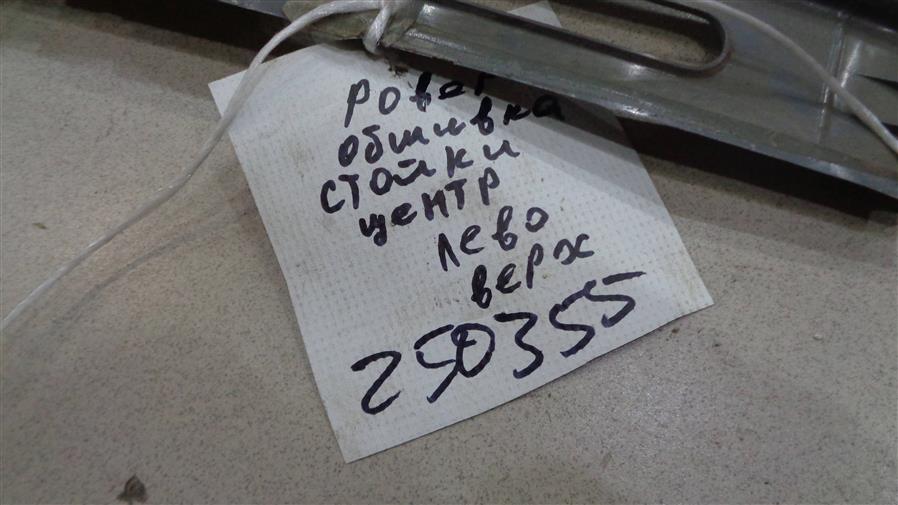 Ровер
обшивка
стойки
центр
лево
верх
250355